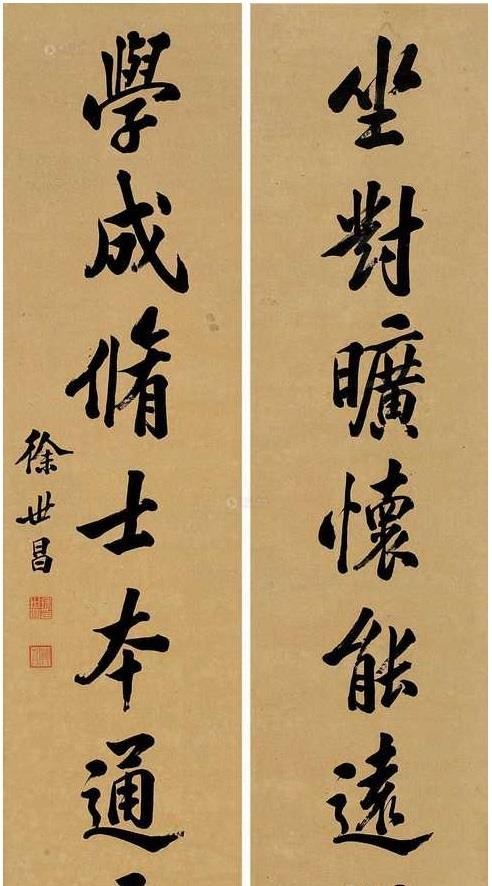 坐對曠懷能遠
學成脩士本通
徐世昌